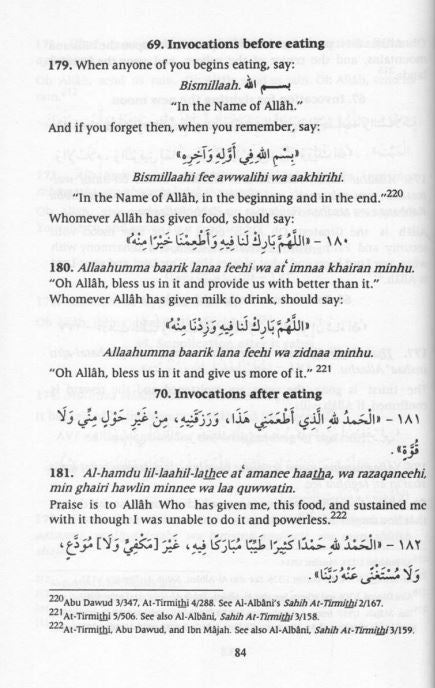 69. Invocations before eating
179. When anyone of you begins eating, say:
Bismillaah. بسم الله
“In the Name of Allâh.”
And if you forget then, when you remember, say:
«بِسْمِ اللهِ فِي أَوَّلِهِ وَآخِرِهِ»
Bismillaahi fee awwalihi wa aakhirihi.
“In the Name of Allâh, in the beginning and in the end.”220
Whomever Allâh has given food, should say:
١٨٠ - «اللَّهُمَّ بَارِكْ لَنَا فِيهِ وَأَطْعِمْنَا خَيْرًا مِنْهُ»
180. Allaahumma baarik lanaa feehi wa at‘imnaa khairan minhu.
“Oh Allâh, bless us in it and provide us with better than it.”
Whomever Allâh has given milk to drink, should say:
«اللَّهُمَّ بَارِكْ لَنَا فِيهِ وَزِدْنَا مِنْهُ»
Allaahumma baarik lana feehi wa zidnaa minhu.
“Oh Allâh, bless us in it and give us more of it.” 221
70. Invocations after eating
١٨١ - «الْحَمْدُ لِلَّهِ الَّذِي أَطْعَمَنِي هَذَا، وَرَزَقَنِيهِ، مِنْ غَيْرِ حَوْلٍ مِنِّي وَلَا
قُوَّةٍ».
181. Al-hamdu lil-laahil-lathee at‘amanee haatha, wa razaqaneehi,
min ghairi hawlin minnee wa laa quwwatin.
Praise is to Allâh Who has given me, this food, and sustained me
with it though I was unable to do it and powerless.222
١٨٢ - «الْحَمْدُ لِلَّهِ حَمْدًا كَثِيرًا طَيِّبًا مُبَارَكًا فِيهِ، غَيْرَ [مَكْفِيٍّ وَلَا] مُوَدَّعٍ،
وَلَا مُسْتَغْنًى عَنْهُ رَبَّنَا».
220Abu Dawud 3/347, At-Tirmithi 4/288. See Al-Albâni's Sahih At-Tirmithi 2/167.
221At-Tirmithi 5/506. See also Al-Albâni, Sahih At-Tirmithi 3/158.
222At-Tirmithi, Abu Dawud, and Ibn Mâjah. See also Al-Albâni, Sahih At-Tirmithi 3/159.
84